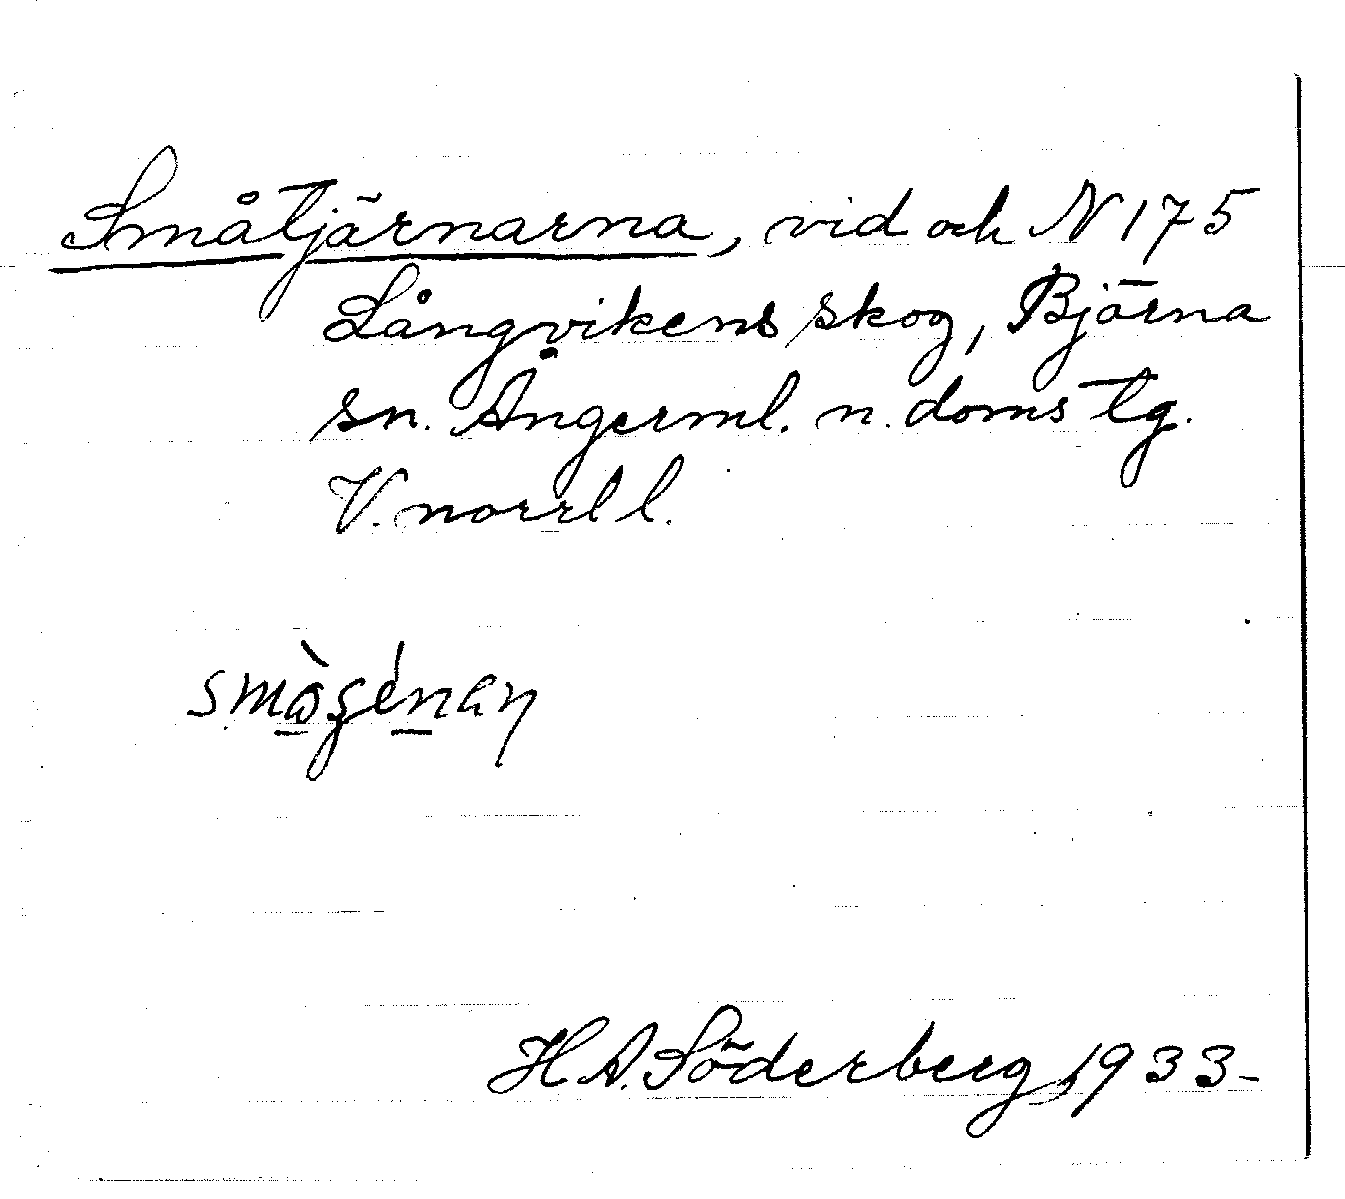 Småtjärnarna, vid och N 175
Långvikens skog, Björna
sn. Ångerml. n. doms tg.
V. norrl l.
H. A. Söderberg 1933-